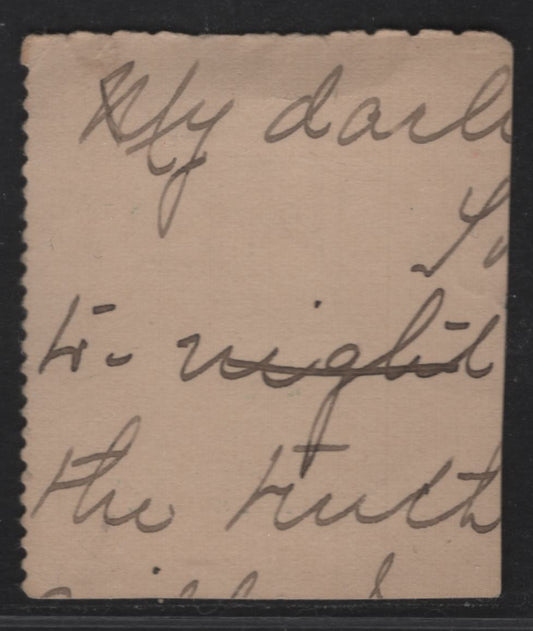 My darl
to-night
the truth